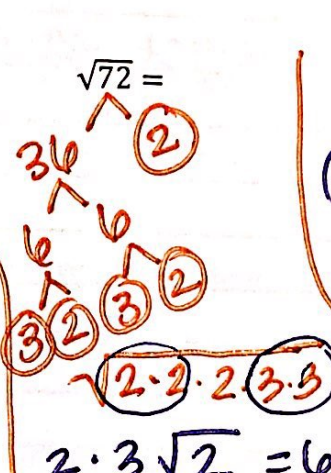 √72 =
36 2
6 6
3 2 3 2
√2·2·2·3·3
2·3√2 = 6